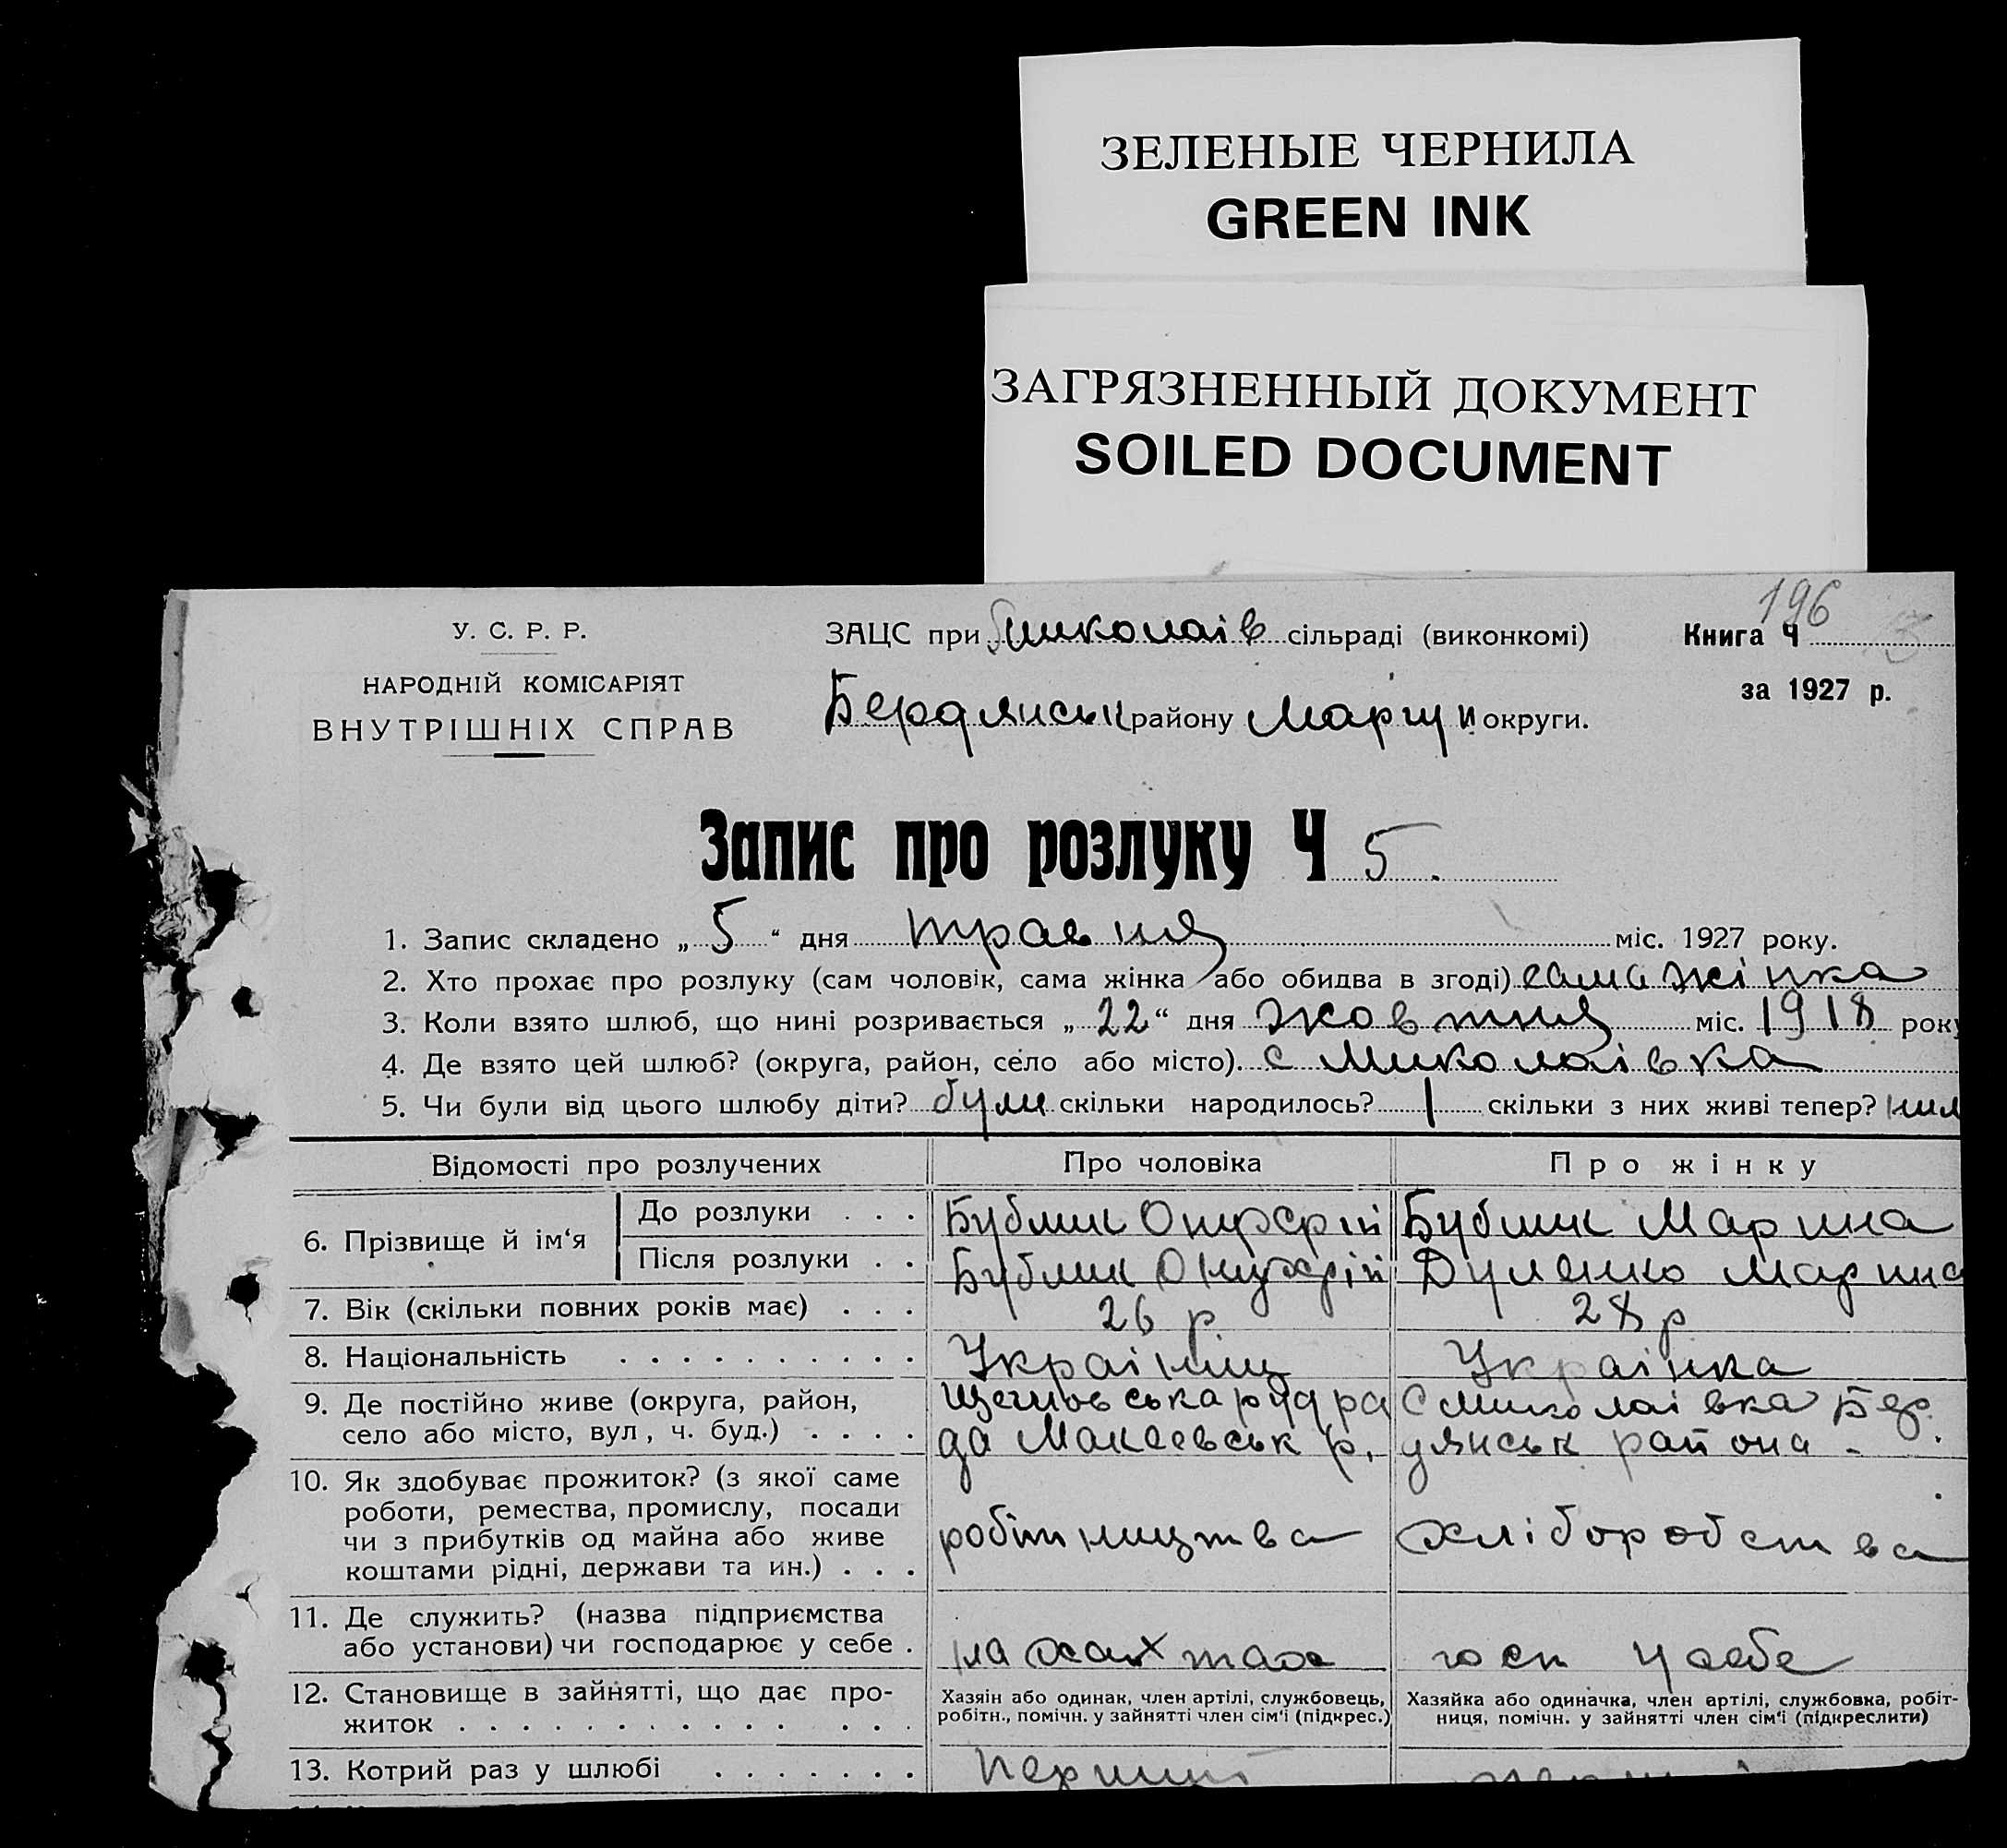 ЗЕЛЕНЫЕ ЧЕРНИЛА
GREEN INK
ЗАГРЯЗНЕННЫЙ ДОКУМЕНТ
SOILED DOCUMENT
196
У. С. Р. Р.
НАРОДНІЙ КОМІСАРІЯТ
ВНУТРІШНІХ СПРАВ
ЗАЦС при Миколаів сільраді (виконкомі)
Бердянськ району Маріуп округи.
Книга Ч
за 1927 р.
Запис про розлуку Ч 5.
1. Запис складено „ 5 “ дня травня міс. 1927 року.
2. Хто прохає про розлуку (сам чоловік, сама жінка або обидва в згоді) сама жінка
3. Коли взято шлюб, що нині розривається „ 22 “ дня жовтня міс. 1918 року
4. Де взято цей шлюб? (округа, район, село або місто). с Миколаівка
5. Чи були від цього шлюбу діти? були скільки народилось? 1 скільки з них живі тепер?
Відомості про розлучених Про чоловіка Про жінку
6. Прізвище й ім‘я До розлуки . . . Бублик Онуфрій Бублик Марина
Після розлуки . . Бублик Онуфрій Дуленко Марина
7. Вік (скільки повних років має) . . . 26 р. 28 р
8. Національність . . . . . . . . . . Украінец Украінка
9. Де постійно живе (округа, район, Щегловська рудра С Миколаівка Бер
село або місто, вул , ч. буд.) . . . . да Макеевськ р. дянськ района -
10. Як здобуває прожиток? (з якої саме
роботи, ремества, промислу, посади
чи з прибутків од майна або живе робітництва хліборобства
коштами рідні, держави та ин.) . . .
11. Де служить? (назва підприємства
або установи) чи господарює у себе . на шахтах госп у себе
12. Становище в зайнятті, що дає про- Хазяін або одинак, член артілі, службовець, Хазяйка або одиначка, член артілі, службовка, робіт-
житок . . . . . . . . . . . . . . робітн., помічн. у зайнятті член сім‘ї (підкрес.) ниця, помічн. у зайнятті член сім‘ї (підкреслити)
13. Котрий раз у шлюбі . . . . . . . перший